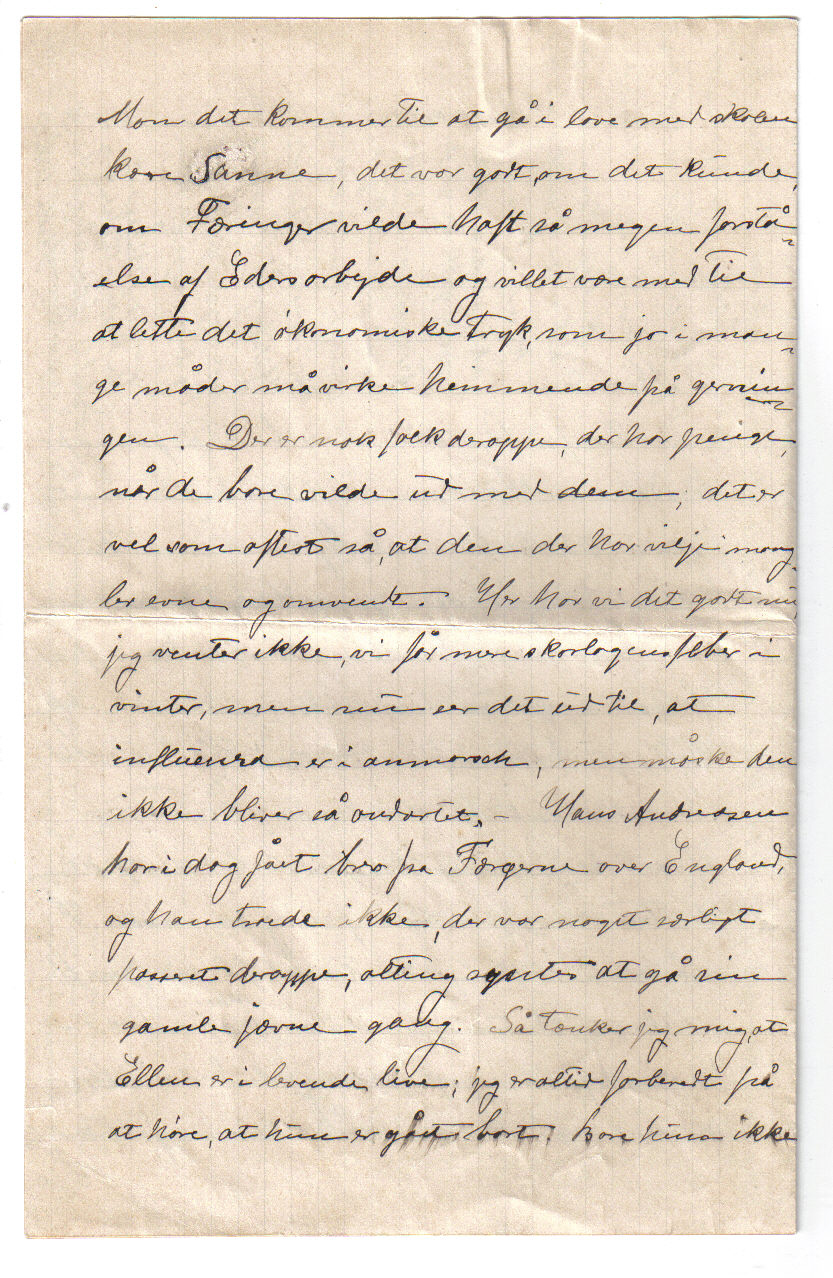 Mon det kommer til at gå i lave med skolen
kære Sanne, det var godt, om det kunde,
om Færinger vilde haft så megen forstå-
else af Eders arbejde og villet være med til
at lette det økonomiske tryk, som jo i man-
ge måder må virke hemmende på gernin-
gen. Der er nok folk deroppe, der har penge,
når de bare vilde ud med dem; det er
vel som oftest så, at den der har vilje mang-
ler evne og omvendt. Her har vi det godt nu,
jeg venter ikke, vi får mere skarlagensfeber i
vinter, men nu ser det ud til, at
influenza er i anmarsch, men måske den
ikke bliver så ondartet. – Hans Andreasen
har i dag fået brev fra Færøerne over England,
og han troede ikke, der var noget særligt
passeret deroppe, alting syntes at gå sin
gamle jævne gang. Så tænker jeg mig, at
Ellen er i levende live; jeg er altid forberedt på
at høre, at hun er gået bort. Bare hun ikke